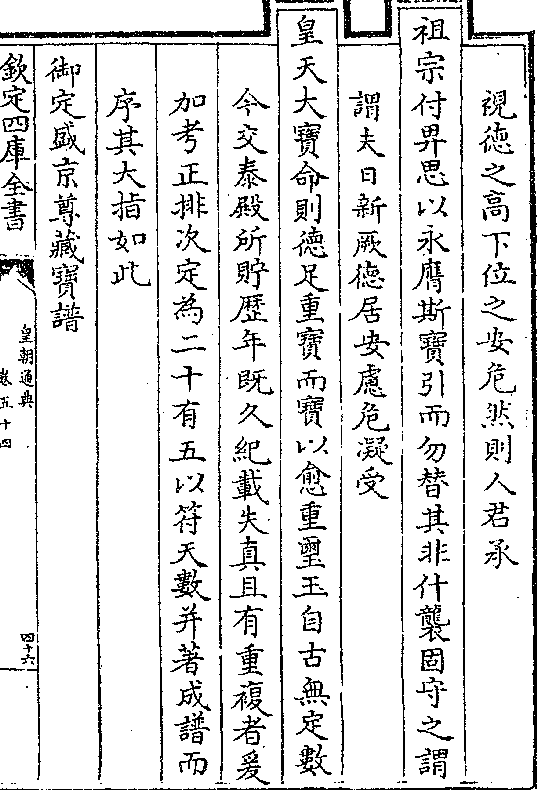 視德之高下位之安危然則人君承
祖宗付畀思以永膺斯寶引而勿替其非什襲固守之謂
謂夫日新厥德居安慮危凝受
皇天大寶命則德足重寶而寶以愈重璽玉自古無定數
今交泰殿所貯歷年既久紀載失真且有重複者爰
加考正排次定為二十有五以符天數并著成譜而
序其大指如此
御定盛京尊藏寶譜
欽定四庫全書
皇朝通典
卷五十四
四十六